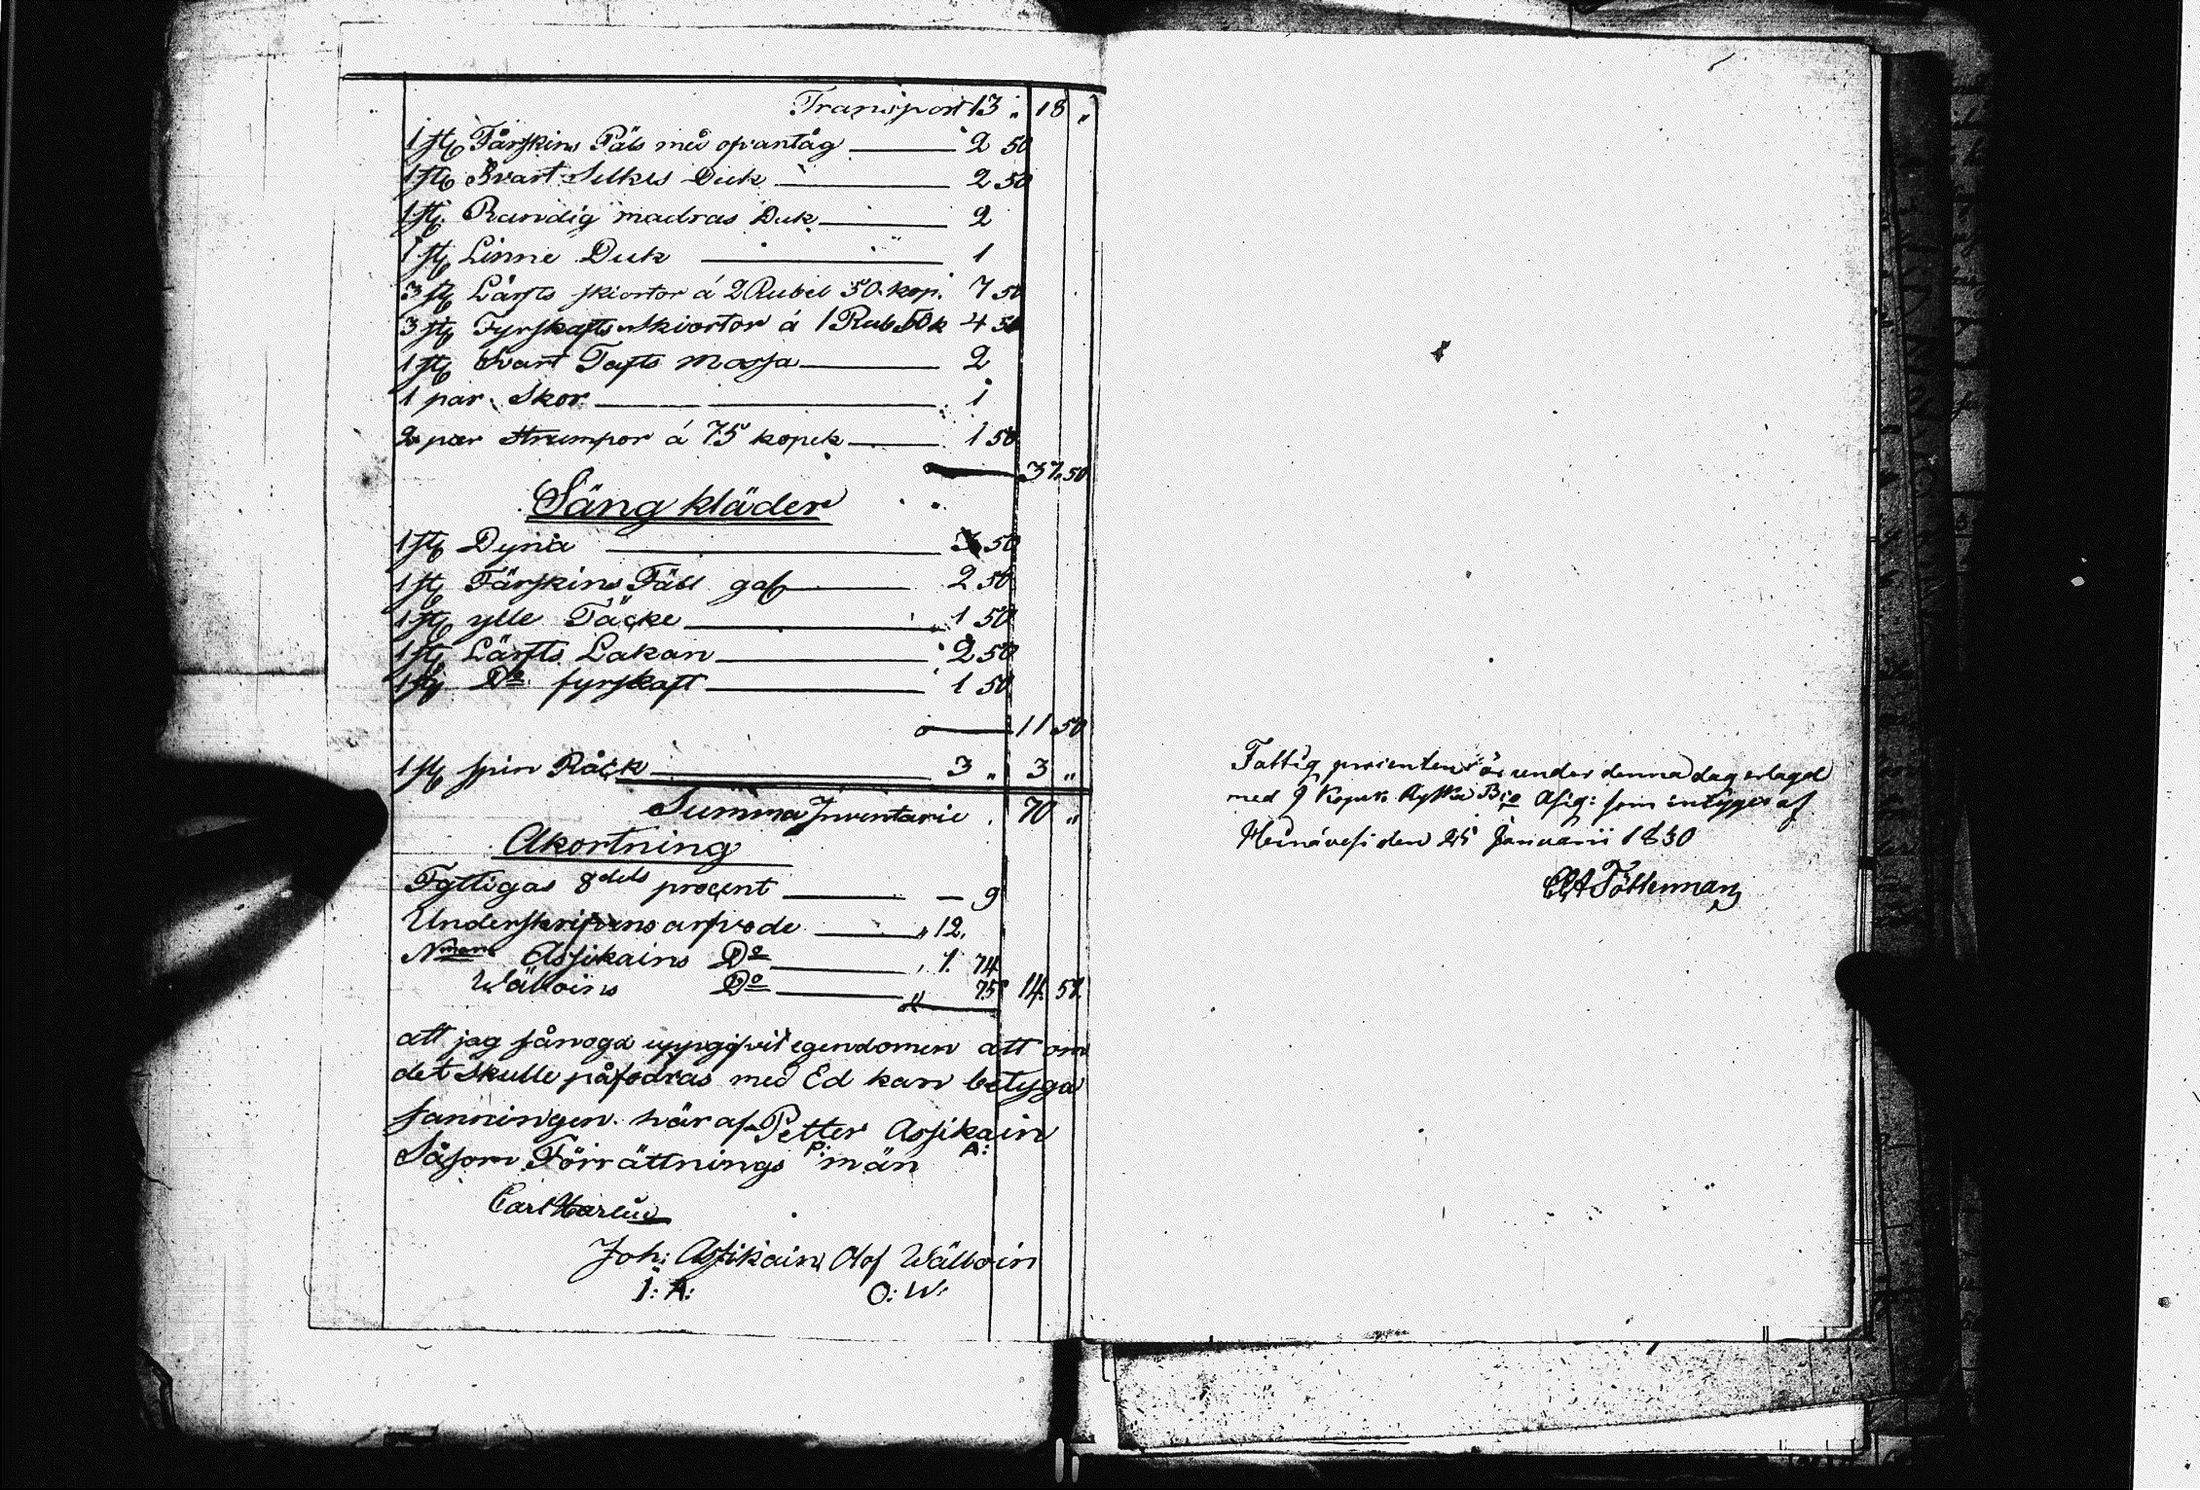 Transport 13 „ 18 „
1 st. Fårskins Päls må ofvantåg — 2 50
1 st. Svart Silkes Duk — 2 50
1 st. Randig madras Duk — 2
1 st. Linne Duk — 1
3 st. Lärfts skiortor á 2 Rubel 50 kop. 7 50
3 st. Fyrskafts skiortor á 1 Rub 50 k 4 50
1 st. Svart Tafts Mossa — 2
1 par Skor — 1
2 par strumpor á 75 kopek — 1 50
37.50
Säng kläder
1 st. Dyna — 3 50
1 st. Fårskins Fäll — 2 50
1 st. ylle Täcke — 1 50
1 st. Lärfts Lakan — 2 50
1 st. Do fyrskaft — 1 50
11 50
1 st. spin Råck — 3 „ 3 „
Summa Inventarie 70 „
Akortning
Fattigas 8dels procent — 9
Underskrifvans arfvode — „ 12.
Nmans Assikains Do — „ 1. 74
Wälloins Do — „ 75 14. 57.
att jag sånoga uppgifvit egendomen att om
det skulle påfodras med Ed kan betyga
sanningen. hvaraf Petter Assikain
P: A:
Såsom Förrättnings män
Carl
Joh: Assikain Olof Wälloin
J: A: O: W:
Fattig procenten är under denna dag erlagd
med 9 Kopek Ryska Bco Assig: som intygas af
Heinävesi den 25 Januarii 1830